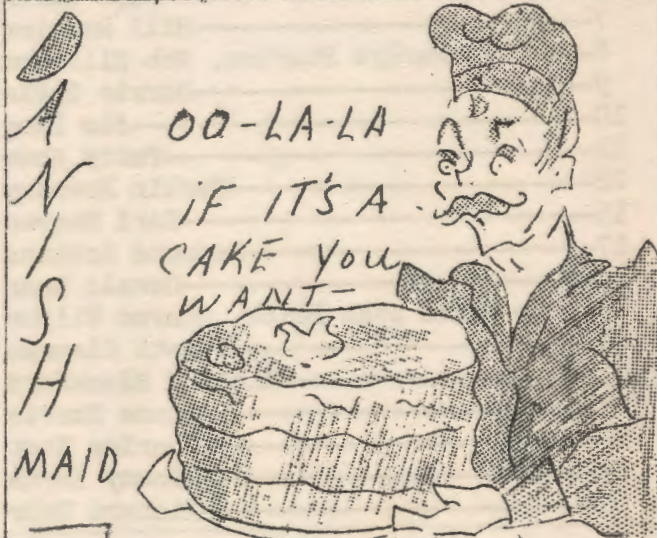 DANISH
MAID
OO-LA-LA
iF IT'S A
CAKE YOU
WANT-